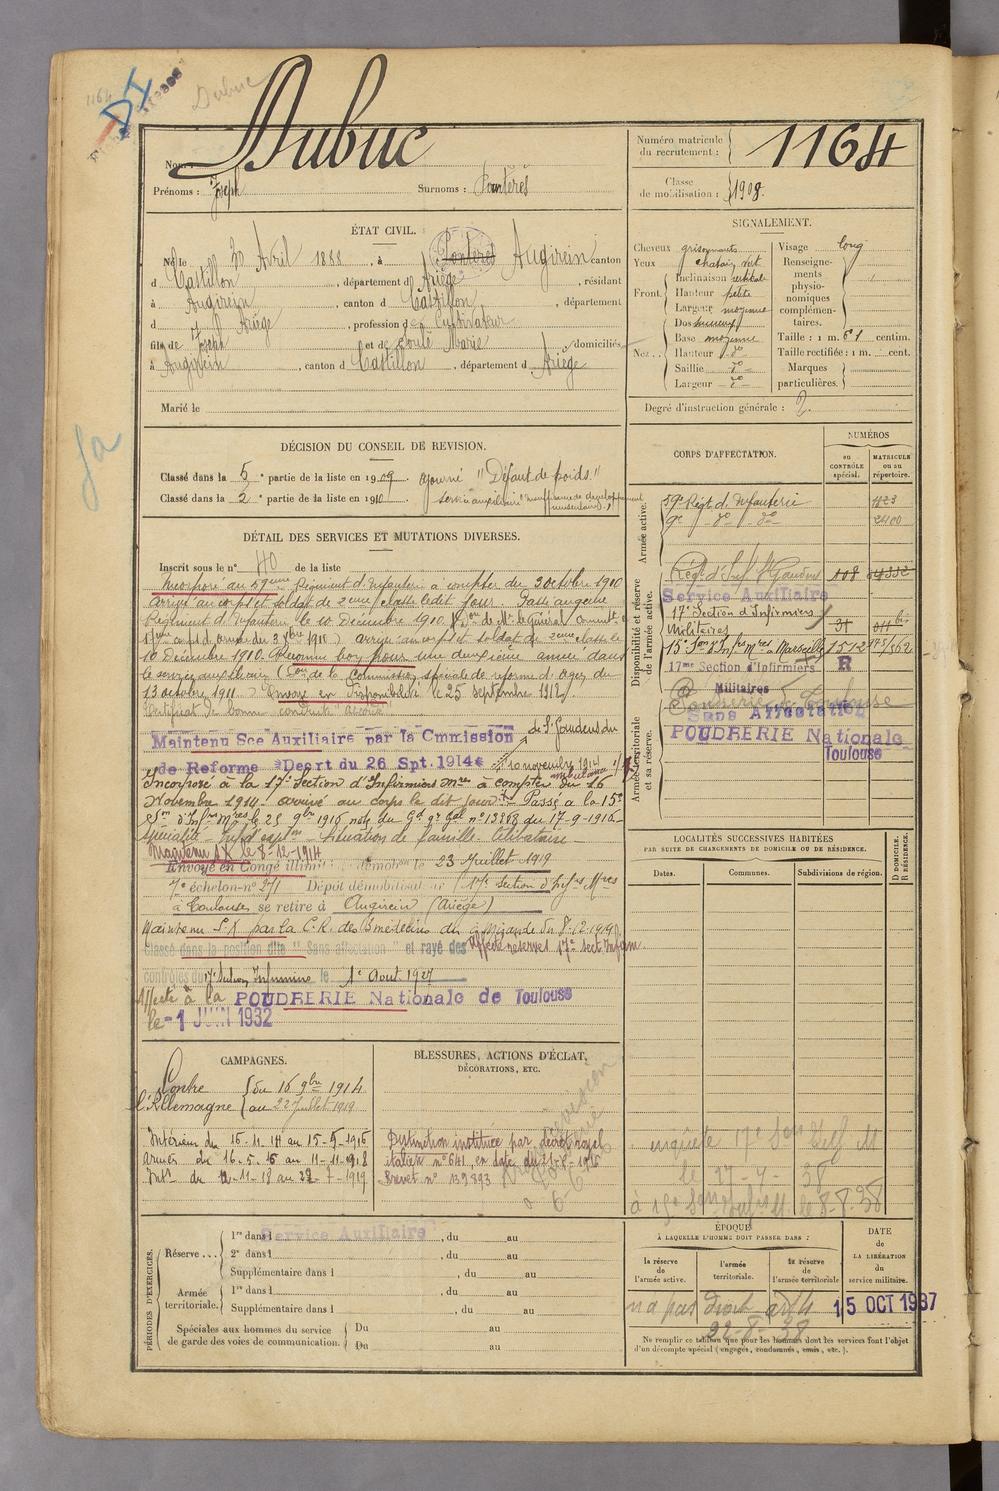 1164
DI
Dubuc
Nom : Dubuc
Prénoms : Joseph Surnoms :
Numéro matricule du recrutement : 1164
Classe de mobilisation : 1908.
ÉTAT CIVIL.
Né le 30 Avril 1888, à Augirein canton
d Castillon, département d Ariège, résidant
à Augirein, canton d Castillon, département
d Ariège, profession de Cultivateur
fils de Joseph et de Marie, domiciliés
à Augirein, canton d Castillon, département d Ariège
Marié le
SIGNALEMENT.
Cheveux grisonnants
Yeux
Front. Inclinaison verticale
Hauteur petite
Largeur moyenne
Nez... Dos
Base moyenne
Hauteur do
Saillie do
Largeur do
Visage long
Renseignements physionomiques complémentaires.
Taille : 1 m. 61 centim.
Taille rectifiée : 1 m. cent.
Marques particulières.
Degré d'instruction générale : 2.
Ja
DÉCISION DU CONSEIL DE REVISION.
Classé dans la 5e partie de la liste en 1909 ajourné "Défaut de poids"
Classé dans la 2e partie de la liste en 1910. service auxiliaire "insuffisance de développement musculaire"
DÉTAIL DES SERVICES ET MUTATIONS DIVERSES.
Inscrit sous le n° 40 de la liste
Incorporé au 59eme Régiment d'Infanterie à compter du 3 octobre 1910
arrivé au corps et soldat de 2eme classe ledit jour. Passé au 9eme
Régiment d'Infanterie, le 10 Décembre 1910.
arrivé au corps et soldat de 2eme classe le
10 Décembre 1910. Reconnu bon pour une deuxième année dans
le service auxiliaire (Don de la Commission spéciale de réforme d'Agen du
13 octobre 1911). Envoyé en disponibilité le 25 septembre 1912.
Certificat de bonne conduite "accordé"
Maintenu Sce Auxiliaire par la Cmmission de St Gaudens du
de Reforme Decrt du 26 Spt. 1914 10 novembre 1914
Incorporé à la 17e Section d'Infirmiers Mres à compter du 16
Novembre 1914. arrivé au corps le dit jour. Passé à la 15e
Son d'Infrs Mres le 25 9bre 1916 note du Gal Qr Gal n° 13868 du 17-9-1916.
Situation de famille. Célibataire
Maintenu S.X. le 8-12-1914
Envoyé en Congé illimité de démobon le 23 Juillet 1919
7e échelon n° 271 Dépôt démobilisateur (17e Section d'Infrs Mres
à Toulouse se retire à Augirein (Ariège)
Maintenu S.X par la C.R. des
Classé dans la position dite "Sans affectation" et rayé des
contrôles du 17e Section Infirmiers le 1er Aout 1927
Affecté à la POUDRERIE Nationale de Toulouse
le - 1 JUIN 1932
CORPS D'AFFECTATION.
NUMÉROS
au CONTRÔLE spécial.
MATRICULE ou au répertoire.
Armée active.
59e Régt d'Infanterie 423
9e do do 2400
Disponibilité et réserve de l'armée active.
Régt d'Inf St Gaudens
Service Auxiliaire
17e Section d'Infirmiers
Militaires
15e Son d'Infrs Mres à Marseille
17me Section d'Infirmiers R
Militaires
Armée territoriale et sa réserve.
Poudrerie de Toulouse
Sans Affectation
POUDRERIE Nationale
Toulouse
LOCALITÉS SUCCESSIVES HABITÉES
PAR SUITE DE CHANGEMENTS DE DOMICILE OU DE RÉSIDENCE.
Dates.
Communes.
Subdivisions de région.
D DOMICILE.
R RÉSIDENCE.
enquête 17e Son
le 17-7-38
à 15e Son Infrs M. le 8-8-38
CAMPAGNES.
Contre l'Allemagne
du 16 9bre 1914
au 22 Juillet 1919
Intérieur du 16-11-14 au 15-5-1916
Armées du 16-5-16 au 11-11-1918
Intr du 12-11-18 au 22-7-1919
BLESSURES, ACTIONS D'ÉCLAT,
DÉCORATIONS, ETC.
Distinction instituée par décret royal
italien n° 641, en date du 21-5-1916
Brevet n° 139893
PÉRIODES D'EXERCICES.
Réserve... 1re dans l Service Auxiliaire, du au
2e dans l, du au
Supplémentaire dans l, du au
Armée territoriale. 1re dans l, du au
Supplémentaire dans l, du au
Spéciales aux hommes du service de garde des voies de communication. Du au
Du au
ÉPOQUE
À LAQUELLE L'HOMME DOIT PASSER DANS :
la réserve de l'armée active.
l'armée territoriale.
la réserve de l'armée territoriale
DATE de LA LIBÉRATION du service militaire.
n'a pas droit
22-8-38
15 OCT 1937
Ne remplir ce tableau que pour les hommes dont les services font l'objet
d'un décompte spécial (engagés, condamnés, omis, etc.).